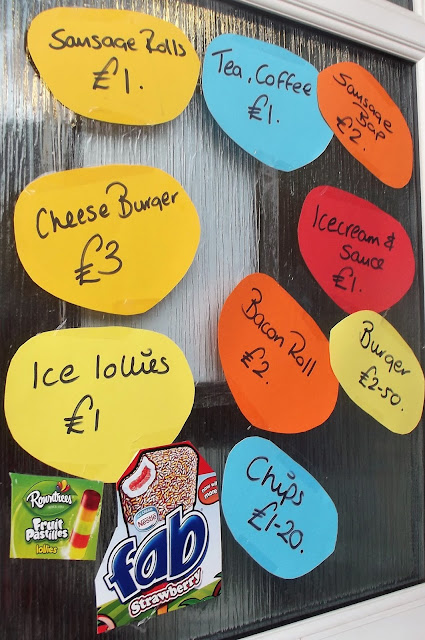 Sausage Rolls
£1.
Tea, Coffee
£1.
Sausage
Bap
£2.
Cheese Burger
£3
Icecream &
Sauce
£1.
Bacon Roll
£2.
Burger
£2-50.
Ice lollies
£1
Chips
£1-20.
Rowntrees
Fruit
Pastilles
lollies
Nestlé
fab
Strawberry